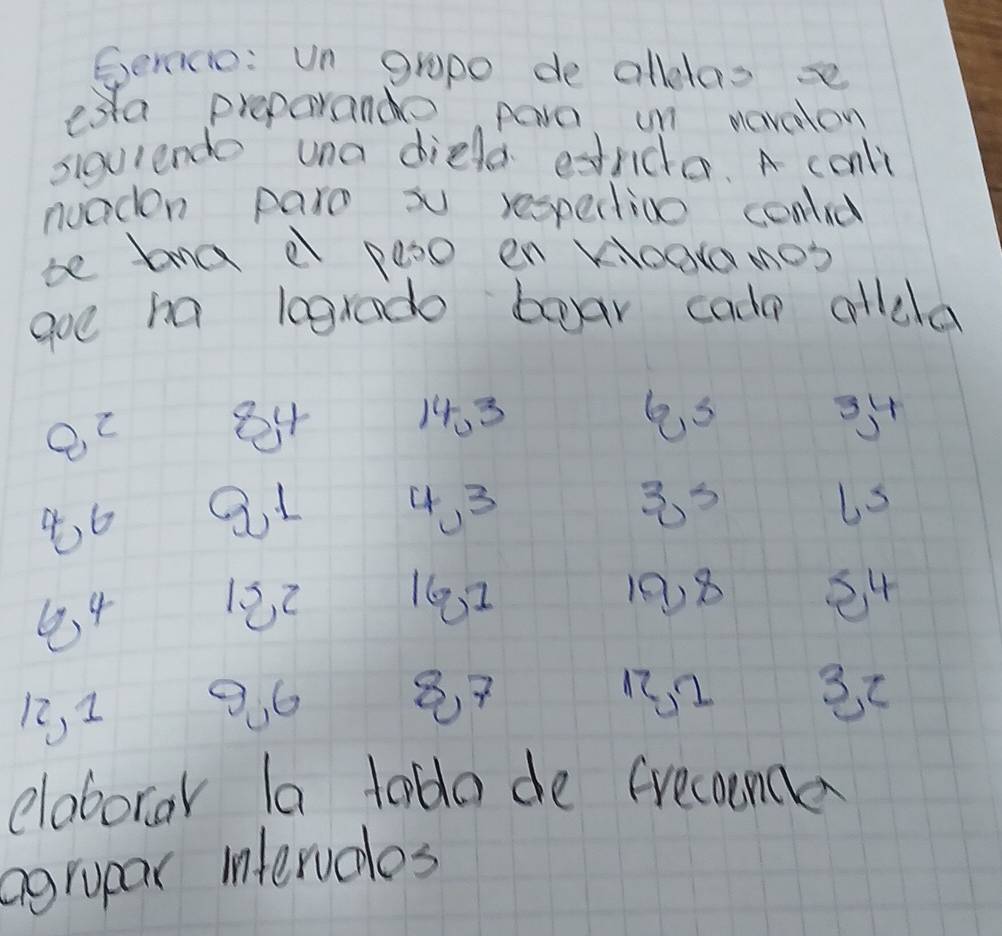 Ejercicio: Un grupo de atletas se
esta preparando para un maraton
siguiendo una dieta estricta. A conti
nuacion para su respectivo control
se toma el peso en Kilogramos
que ha logrado bajar cada atleta
0,2 8,4 14,3 6,5 3,4
4,6 9,1 4,3 3,5 1,5
6,4 15,2 16,1 10,8 5,4
12,1 9,6 8,7 12,1 3,2
elaborar la tabla de frecuencia
agrupar intervalos